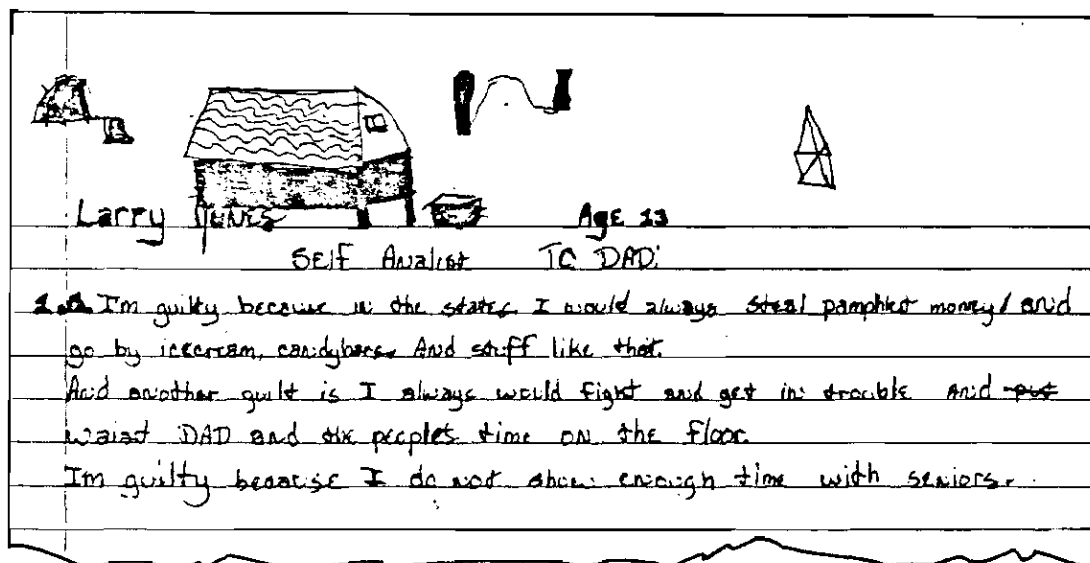 Larry Jones Age 13
Self Analist TO DAD:
1. I'm guilty because in the states I would always steal pamphlet money/ and
go by icecream, candybars. And stuff like that.
And another guilt is I always would fight and get in trouble And put
waist DAD and the peoples time on the floor.
Im guilty because I do not show enough time with seniors.